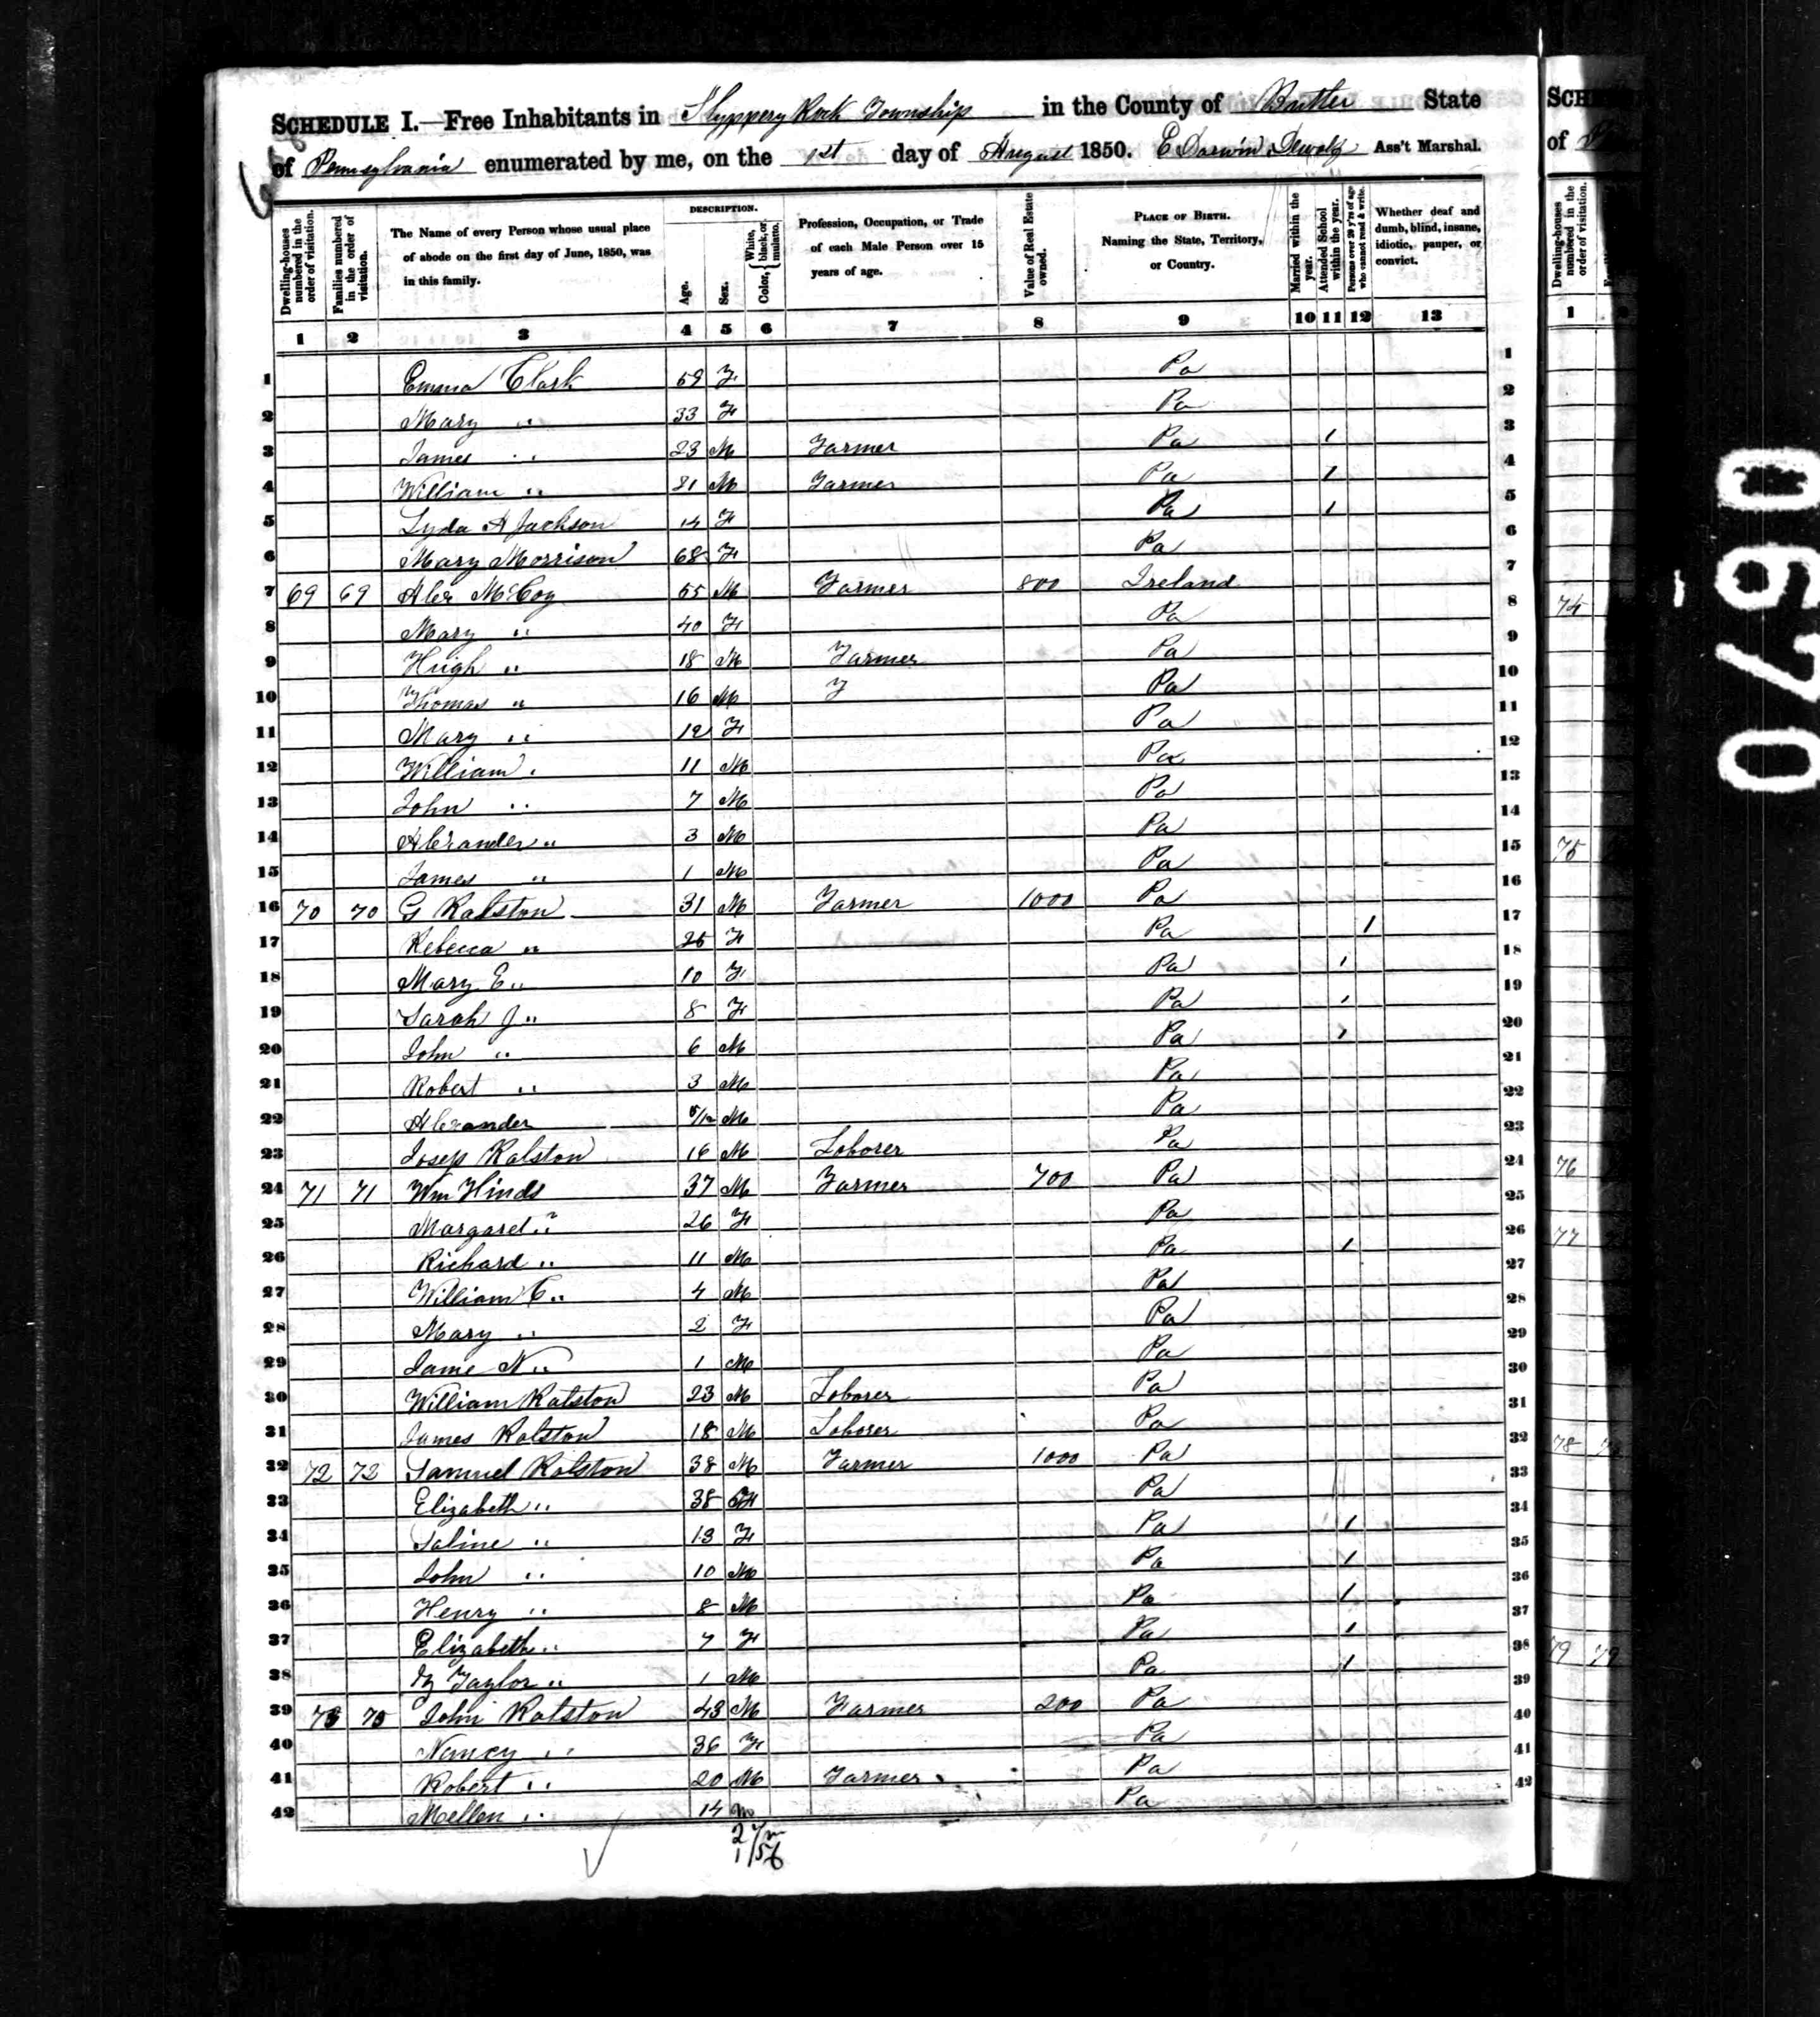 SCHEDULE I.—Free Inhabitants in Slyppery Rock Township in the County of Buttler State
of Pennsylvania enumerated by me, on the 1st day of August 1850. E Darwin Dewolf Ass't Marshal.
Dwelling-houses numbered in the order of visitation.
Families numbered in the order of visitation.
The Name of every Person whose usual place of abode on the first day of June, 1850, was in this family.
DESCRIPTION.
Age.
Sex.
Color, { White, black, or mulatto.
Profession, Occupation, or Trade of each Male Person over 15 years of age.
Value of Real Estate owned.
PLACE OF BIRTH. Naming the State, Territory, or Country.
Married within the year.
Attended School within the year.
Persons over 20 y'rs of age who cannot read & write.
Whether deaf and dumb, blind, insane, idiotic, pauper, or convict.
1 2 3 4 5 6 7 8 9 10 11 12 13
1 Emma Clark 59 F Pa 1
2 Mary " 33 F Pa 2
3 James " 23 M Farmer Pa 1 3
4 William " 21 M Farmer Pa 1 4
5 Lyda A Jackson 14 F Pa 1 5
6 Mary Morrison 68 F Pa 6
7 69 69 Alex McCoy 55 M Farmer 800 Ireland 7
8 Mary " 40 F Pa 8
9 Hugh " 18 M Farmer Pa 9
10 Thomas " 16 M F Pa 10
11 Mary " 12 F Pa 11
12 William " 11 M Pa 12
13 John " 7 M Pa 13
14 Alexander " 3 M Pa 14
15 James " 1 M Pa 15
16 70 70 G Ralston 31 M Farmer 1000 Pa 16
17 Rebecca " F Pa 1 17
18 Mary E " 10 F Pa 1 18
19 Sarah J " 8 F Pa 1 19
20 John " 6 M Pa 1 20
21 Robert " 3 M Pa 21
22 Alexander 5/12 M Pa 22
23 Josep Ralston 16 M Laborer Pa 23
24 71 71 Wm Hinds 37 M Farmer 700 Pa 24
25 Margaret " 26 F Pa 25
26 Richard " 11 M Pa 1 26
27 William C " 4 M Pa 27
28 Mary " 2 F Pa 28
29 Jame N " 1 M Pa 29
30 William Ralston 23 M Laborer Pa 30
31 James Ralston 18 M Laborer Pa 31
32 72 72 Samuel Ralston 38 M Farmer 1000 Pa 32
33 Elizabeth " 38 F Pa 33
34 Saline " 13 F Pa 1 34
35 John " 10 M Pa 1 35
36 Henry " 8 M Pa 1 36
37 Elizabeth " 7 F Pa 1 37
38 Taylor " 1 M Pa 1 38
39 73 73 John Ralston 43 M Farmer 200 Pa 39
40 Nancy " 36 F Pa 40
41 Robert " 20 M Farmer Pa 41
42 Mellen " 14 M Pa 42
SCHE
of
Dwelling-houses numbered in the order of visitation.
1
74
75
76
77
78
79 79
0670